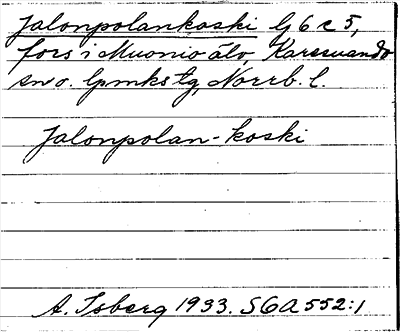 Jalonpolankoski G 6 c 5,
fors i Muonio älv, Karesuando
sn o. lpmks tg, Norrb. l.
Jalonpolan-koski
A. Isberg 1933. SGA 552:1